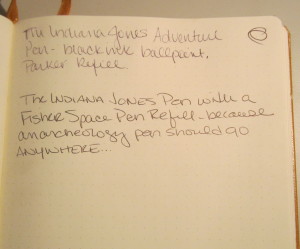 The Indiana Jones Adventure
Pen - black ink ballpoint,
Parker Refill
The INDIANA JONES Pen with a
Fisher Space Pen Refill - because
an archeology pen should go
ANYWHERE...